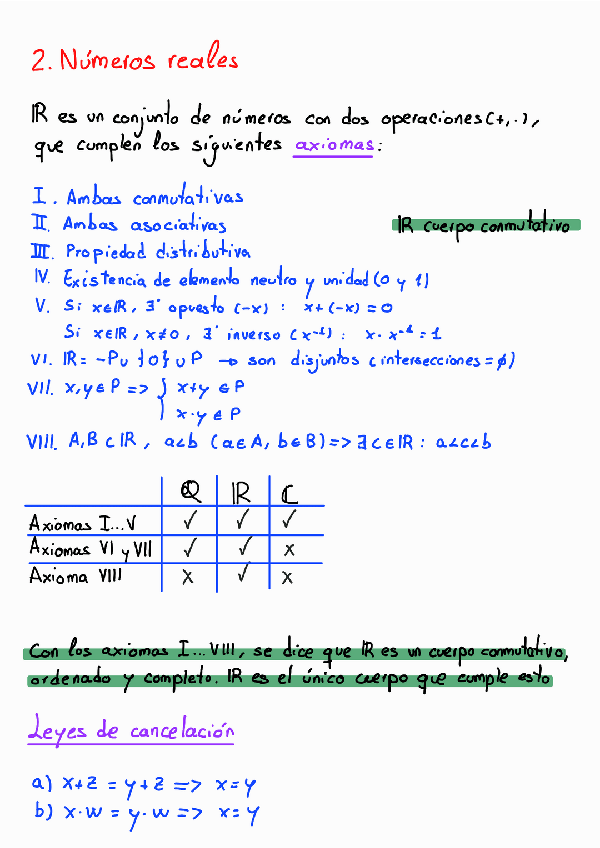 2. Números reales
IR es un conjunto de números con dos operaciones (+, ·),
que cumplen los siguientes axiomas:
I. Ambas conmutativas
II. Ambas asociativas
IR cuerpo conmutativo
III. Propiedad distributiva
IV. Existencia de elemento neutro y unidad (0 y 1)
V. Si x∈IR, ∃' opuesto (-x) : x+(-x)=0
Si x∈IR, x≠0, ∃' inverso (x⁻¹) : x·x⁻¹=1
VI. IR = -P∪{0}∪P → son disjuntos (intersecciones=∅)
VII. x,y∈P => { x+y ∈P
x·y ∈P
VIII. A,B ⊂ IR, a<b (a∈A, b∈B) => ∃c∈IR : a<c<b
Q IR C
Axiomas I...V ✓ ✓ ✓
Axiomas VI y VII ✓ ✓ x
Axioma VIII x ✓ x
Con los axiomas I...VIII, se dice que IR es un cuerpo conmutativo,
ordenado y completo. IR es el único cuerpo que cumple esto
Leyes de cancelación
a) x+z = y+z => x=y
b) x·w = y·w => x=y